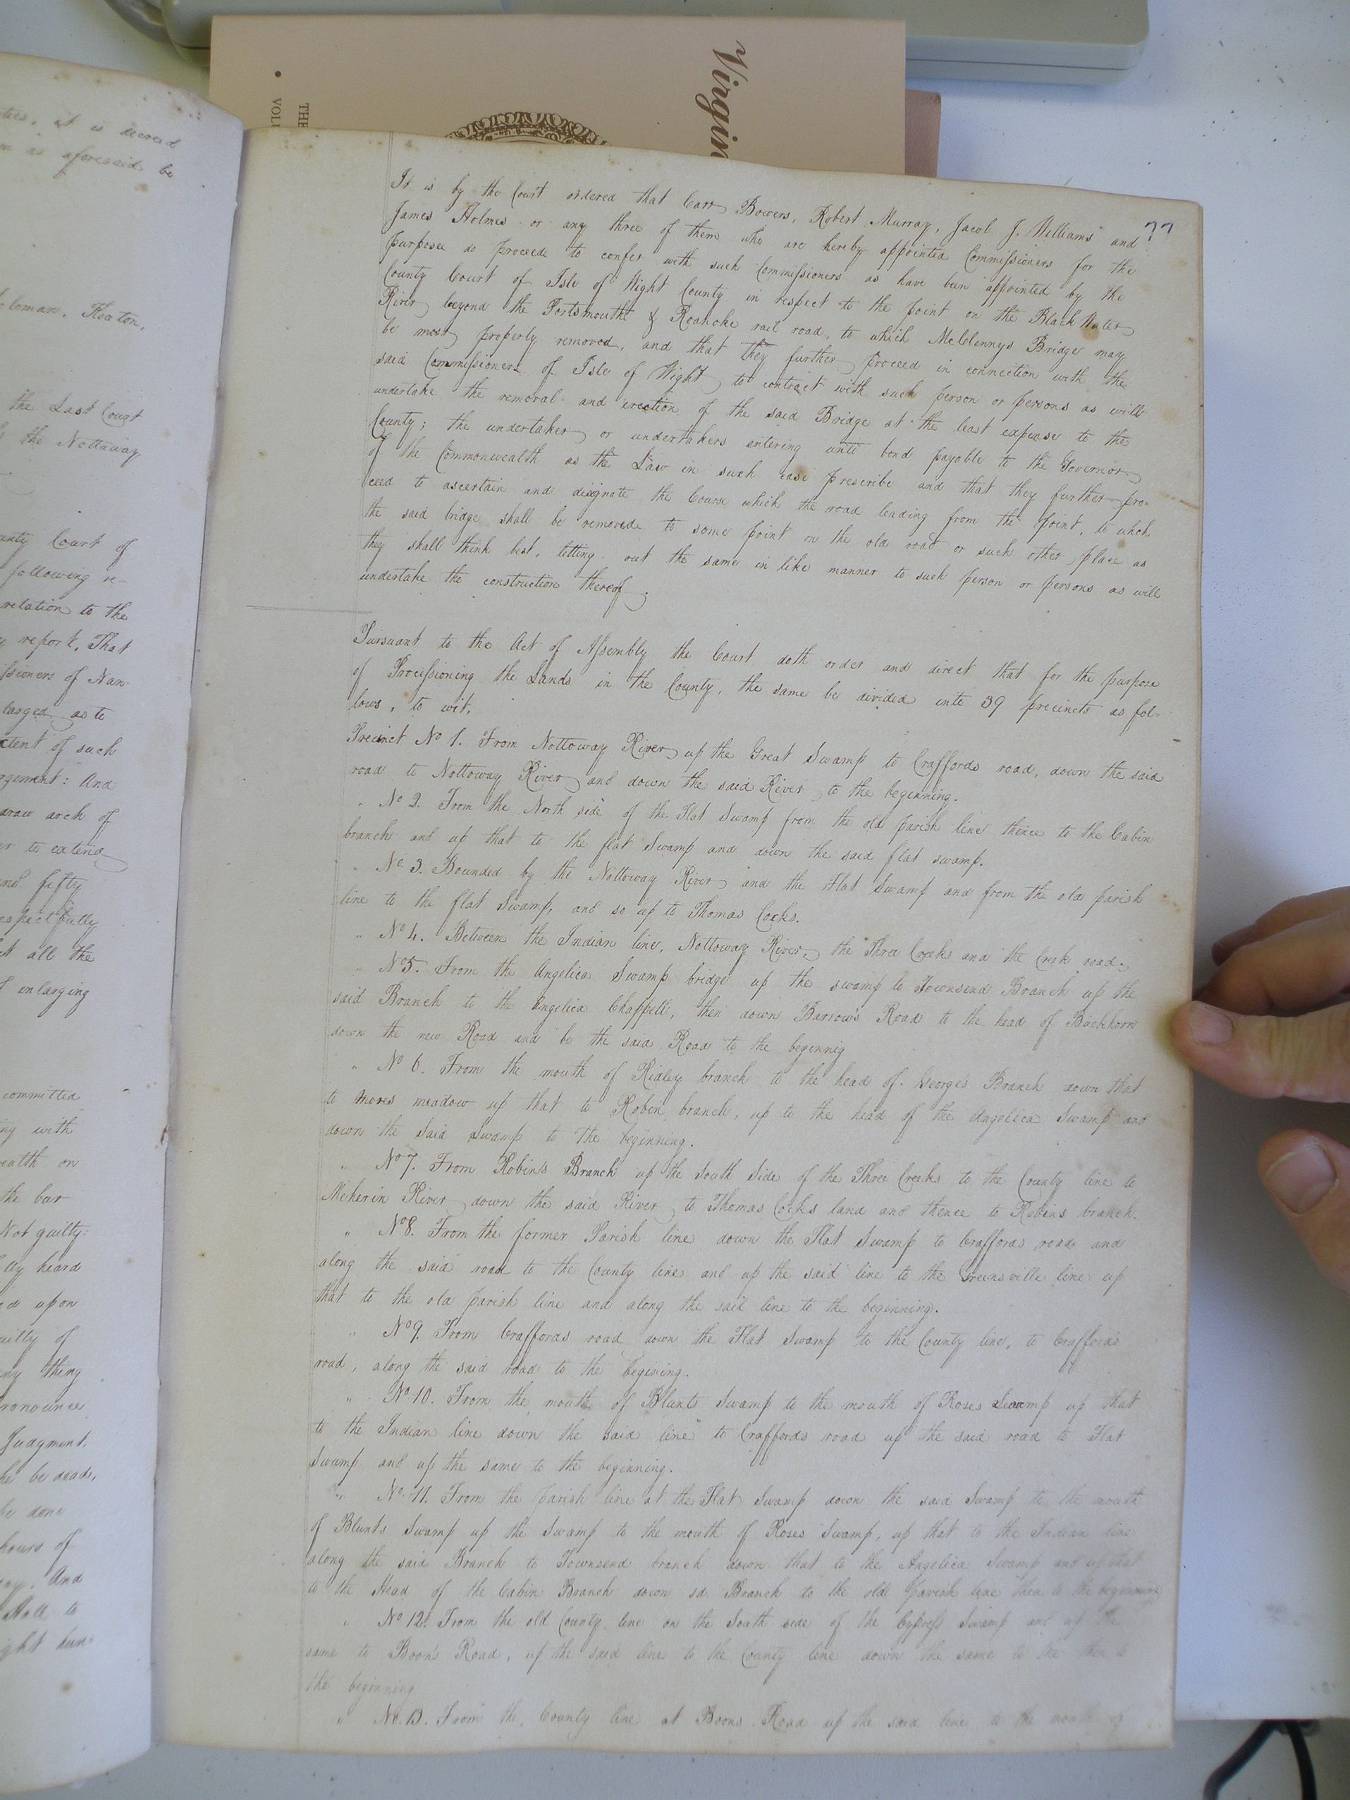 Virgin
THE
VOL
77
ties, it is decreed
as aforesaid be
oleman, Keaton,
the Last Court
the Nottoway
unty Court of
following re-
relation to the
report, That
ssioners of Nan
larged as to
xtent of such
rgement: And
draw arch of
to extend
and fifty
espectfully
all the
enlarging
committed
ng with
ealth on
the bar
Not guilty:
lly heard
ed upon
uilty of
ny thing
pronounce
Judgment.
he be dead,
be done
hours of
And
Hall to
ight hun-
It is by the Court ordered that Carr Bowers, Robert Murray, Jacob J. Williams and
James Holmes or any three of them who are hereby appointed Commissioners for the
purpose do proceed to confer with such Commissioners as have been appointed by the
County Court of Isle of Wight County in respect to the point on the Black Water
River beyond the Portsmouth & Roanoke rail road, to which McClennys Bridge may
be most properly removed, and that they further proceed in connection with the
said Commissioners of Isle of Wight to contract with such person or persons as will
undertake the removal and erection of the said Bridge at the least expense to the
County; the undertaker or undertakers entering into bond payable to the Governor
of the Commonwealth as the Law in such case prescribe and that they further pro-
ceed to ascertain and disignate the Course which the road leading from the point, to which
the said bridge shall be removed to some point on the old road or such other place as
they shall think best, letting out the same in like manner to such person or persons as will
undertake the construction thereof.
Pursuant to the Act of Assembly the Court doth order and direct that for the purpose
of Processioning the Lands in the County, the same be divided into 39 precincts as fol-
lows, to wit,
Precinct No 1. From Nottoway River up the Great Swamp to Craffords road, down the said
road to Nottoway River and down the said River to the beginning.
" No 2. From the North side of the Flat Swamp from the old parish line thence to the Cabin
branch and up that to the flat Swamp and down the said flat swamp.
" No 3. Bounded by the Nottoway River and the Flat Swamp and from the old parish
line to the flat Swamp, and so up to Thomas Cocks.
" No 4. Between the Indian line, Nottoway River, the Three Creeks and the Creek road.
" No 5. From the Angelica Swamp bridge up the swamp to Townsend Branch up the
said Branch to the Engelica Chappell, then down Barrow's Road to the head of Buckhorn
down the new Road and be the said Road to the beginnig
" No 6. From the mouth of Ridley branch to the head of George's Branch down that
to Mores meadow up that to Robin branch, up to the head of the Angelica Swamp and
down the said Swamp to the beginning.
" No 7. From Robins Branch up the South Side of the Three Creeks to the County line to
Meherin River down the said River to Thomas Cocks land and thence to Robins branch.
" No 8. From the former Parish line down the Flat Swamp to Craffords road and
along the said road to the County line and up the said line to the Greensville line up
that to the old parish line and along the said line to the beginning.
" No 9. From Craffords road down the Flat Swamp to the County line, to Craffords
road, along the said road to the begining.
" No 10. From the mouth of Blunts Swamp to the mouth of Roses Swamp up that
to the Indian line down the said line to Craffords road up the said road to Flat
Swamp and up the same to the beginning.
" No 11. From the parish line at the Flat Swamp down the said Swamp to the mouth
of Blunts Swamp up the Swamp to the mouth of Roses Swamp, up that to the Indian line
along the said Branch to Townsend branch down that to the Angelica Swamp and up that
to the Head of the Cabin Branch down sd Branch to the old Parish line then to the beginning
" No 12. From the old County line on the South side of the Cypress Swamp and up the
same to Boon's Road, up the said line to the County line down the same to the
the beginning
" No. 13. From the County line at Boons Road up the said line to the mouth of